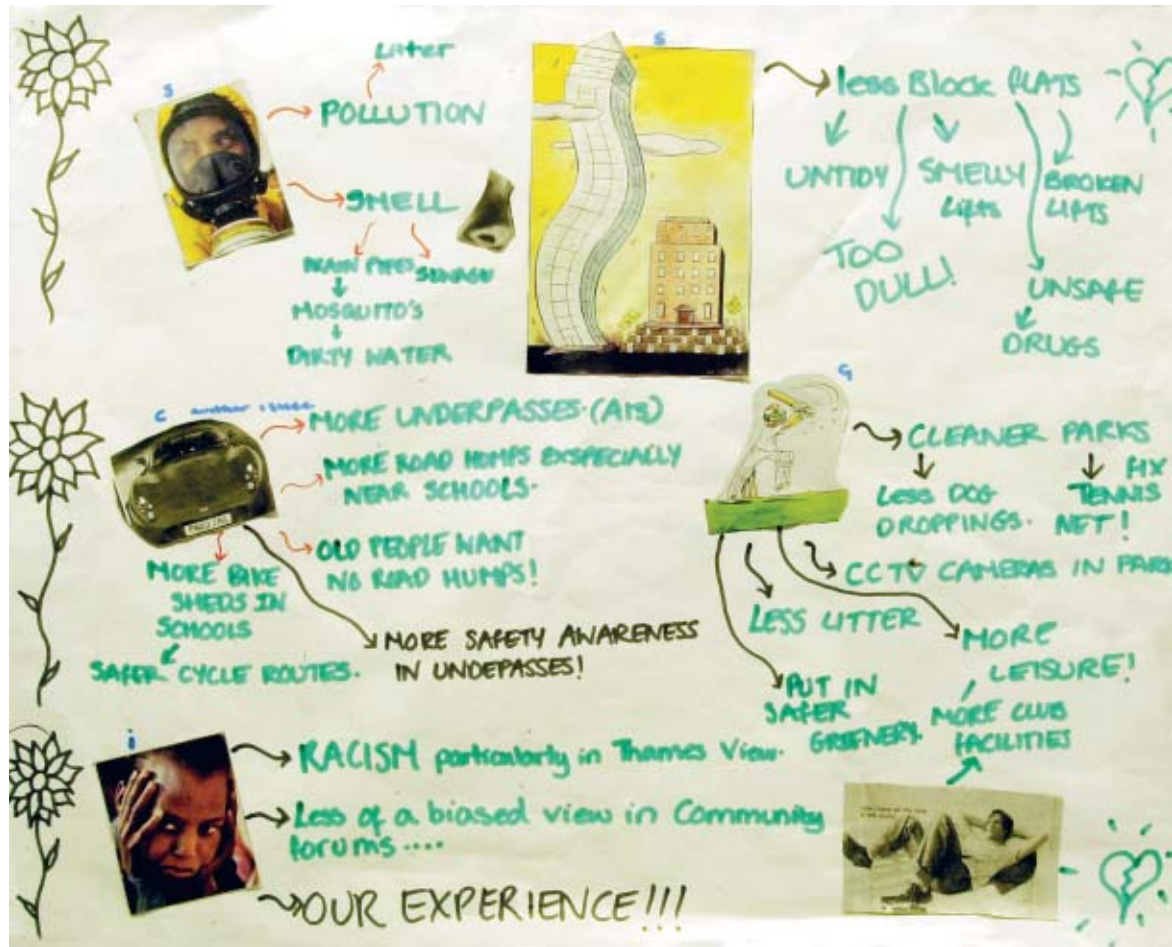 S
Litter
POLLUTION
SMELL
DRAIN PIPES
SEWAGE
MOSQUITO'S
DIRTY WATER
S
less Block FLATS
UNTIDY
TOO
DULL!
SMELLY
Lifts
BROKEN
LIFTS
UNSAFE
DRUGS
C another issue
MORE UNDERPASSES. (A13)
MORE ROAD HUMPS EXSPECIALLY
NEAR SCHOOLS.
OLD PEOPLE WANT
NO ROAD HUMPS!
MORE BIKE
SHEDS IN
SCHOOLS
SAFER CYCLE ROUTES.
MORE SAFETY AWARENESS
IN UNDEPASSES!
G
CLEANER PARKS
Less DOG
DROPPINGS.
FIX
TENNIS
NET!
CCTV CAMERAS IN PARK
LESS LITTER
MORE
LEISURE!
MORE CLUB
FACILITIES
PUT IN
SAFER
GREENERY.
i
RACISM particularly in Thames View.
Less of a biased view in Community
forums ....
OUR EXPERIENCE!!!